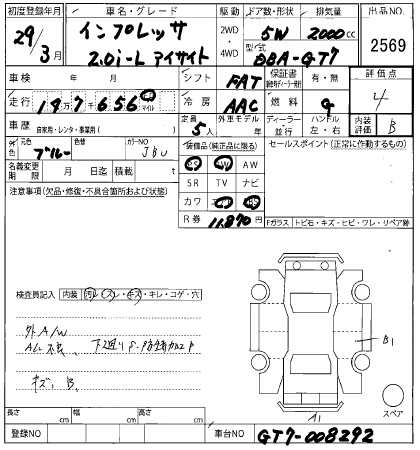 初度登録年月 車名・グレード 駆動 ドア数・形状 排気量 出品NO
29年 3月 インプレッサ 2.0i-L アイサイト 2WD・4WD 5W 2000cc 2569
型/式 DBA-GT7
車検 年 月 シフト FAT 保証書 有・無 評価点
走行 19万7千656 マイル 冷房 AAC 燃料 G 4
車歴 自家用・レンタ・事業用( ) 定員 5人 外車モデル 年 ディーラー・並行 ハンドル 左・右 内装評価 B
外色 元色 ブルー 色替 カラーNO JBU 装備品(純正品に限る) セールスポイント(正常に動作するもの)
PS PW AW
名義変更期限 月 日迄 積載量 t SR TV ナビ
注意事項(欠品・修復・不具合箇所および状態) カワ
R券 11,870
Fガラス トビ石・キズ・ヒビ・ワレ・リペア跡
検査員記入 内装 汚レ・スレ・キズ・キレ・コゲ・穴
外A/W
下廻りS・防錆加工P
キズ B1
B1
A1
スペア
長さ cm 幅 cm 高さ cm
登録NO 車台NO GT7-008292